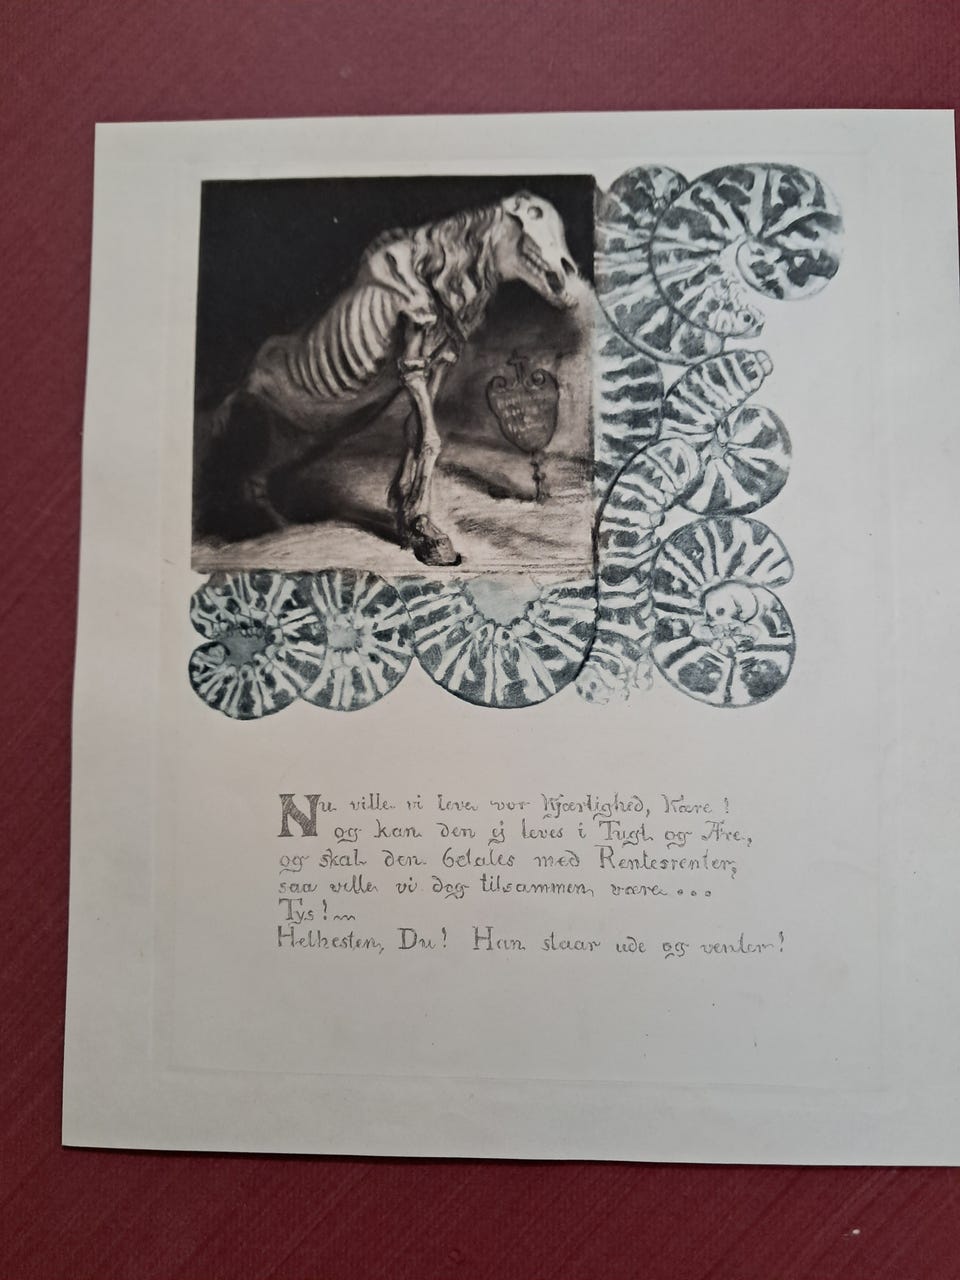 Nu ville vi leve vor Kjærlighed, Kære!
og kan den ej leves i Tugt og Ære,
og skal den betales med Rentesrenter,
saa ville vi dog tilsammen være...
Tys!~
Helhesten, Du! Han staar ude og venter!